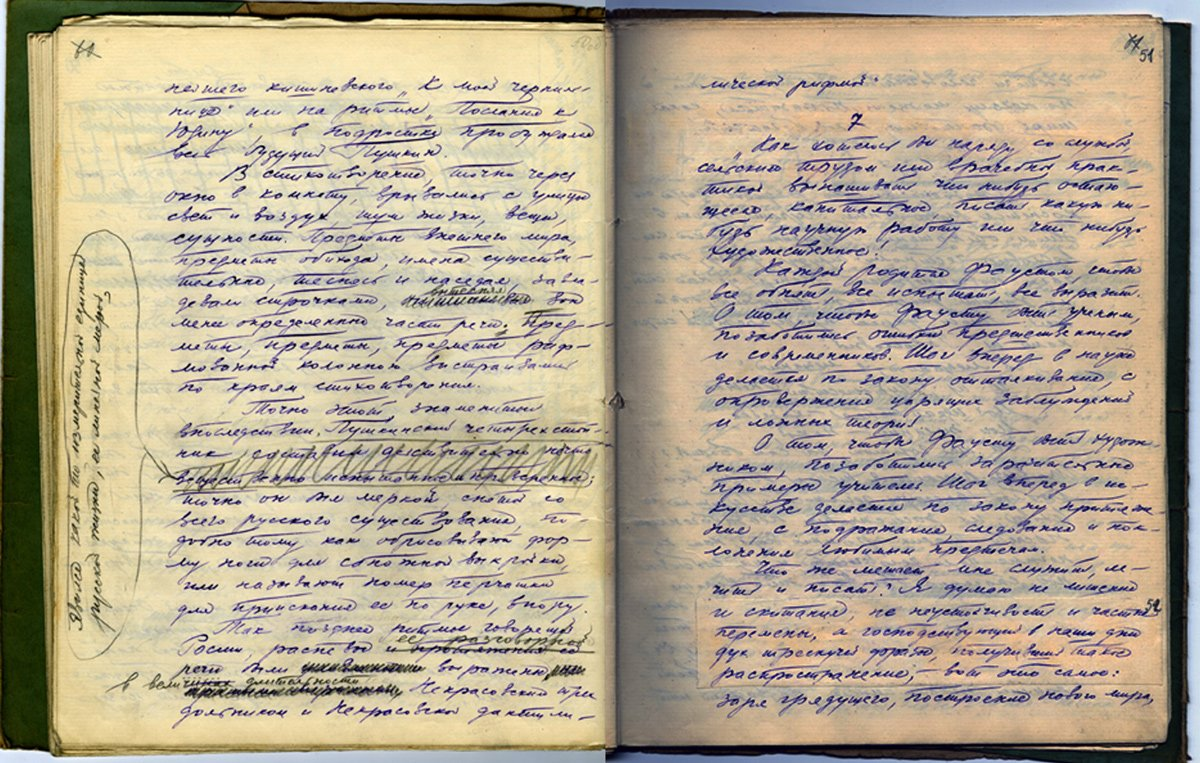 нейшего кишиневского „К моей черниль-
нице" или на ритмы „Послания к
Юдину", в подростке пробуждался
весь будущий Пушкин.
В стихотворение, точно через
окно в комнату, врывались с улицы
свет и воздух, шум жизни, вещи,
сущности. Предметы внешнего мира,
предметы обихода, имена существи-
тельные, теснясь и наседая, завла-
девали строчками, вытесняя вон
менее определенные части речи. Пред-
меты, предметы, предметы риф-
мованной колонною выстраивались
по краям стихотворения.
Точно этот, знаменитый
впоследствии, Пушкинский четырехстоп-
ник,
какой то измерительной единицей
русской жизни, ее линейной мерой,
точно он был меркой, снятой со
всего русского существования, по-
добно тому как обрисовывают фор-
му ноги для сапожной выкройки,
или называют номер перчатки
для приискания ее по руке, впору.
Так позднее ритмы говорящей
России, распевы ее разговорной
речи были выражены
в величинах длительности Некрасовским трех-
дольником и Некрасовской дактили-
51
ческой рифмой"
7
„Как хотелось бы наряду со службой,
сельским трудом или врачебной прак-
тикой вынашивать что нибудь остаю-
щееся, капитальное, писать какую ни-
будь научную работу или что нибудь
художественное!
Каждый родится Фаустом, чтобы
все обнять, все испытать, все выразить.
О том, чтобы Фаусту быть ученым,
позаботились ошибки предшественников
и современников. Шаг вперед в науке
делается по закону отталкивания, с
опровержения царящих заблуждений
и ложных теорий.
О том, чтобы Фаусту быть худож-
ником, позаботились заразительные
примеры учителей. Шаг вперед в ис-
кусстве делается по закону притяже-
ния, с подражания, следования и пок-
лонения любимым предтечам.
Что же мешает мне служить, ле-
чить и писать? Я думаю не лишения
и скитания, не неустойчивость и частые
52
перемены, а господствующий в наши дни
дух трескучей фразы, получивший такое
распространение, – вот это самое:
заря грядущего, построение нового мира,